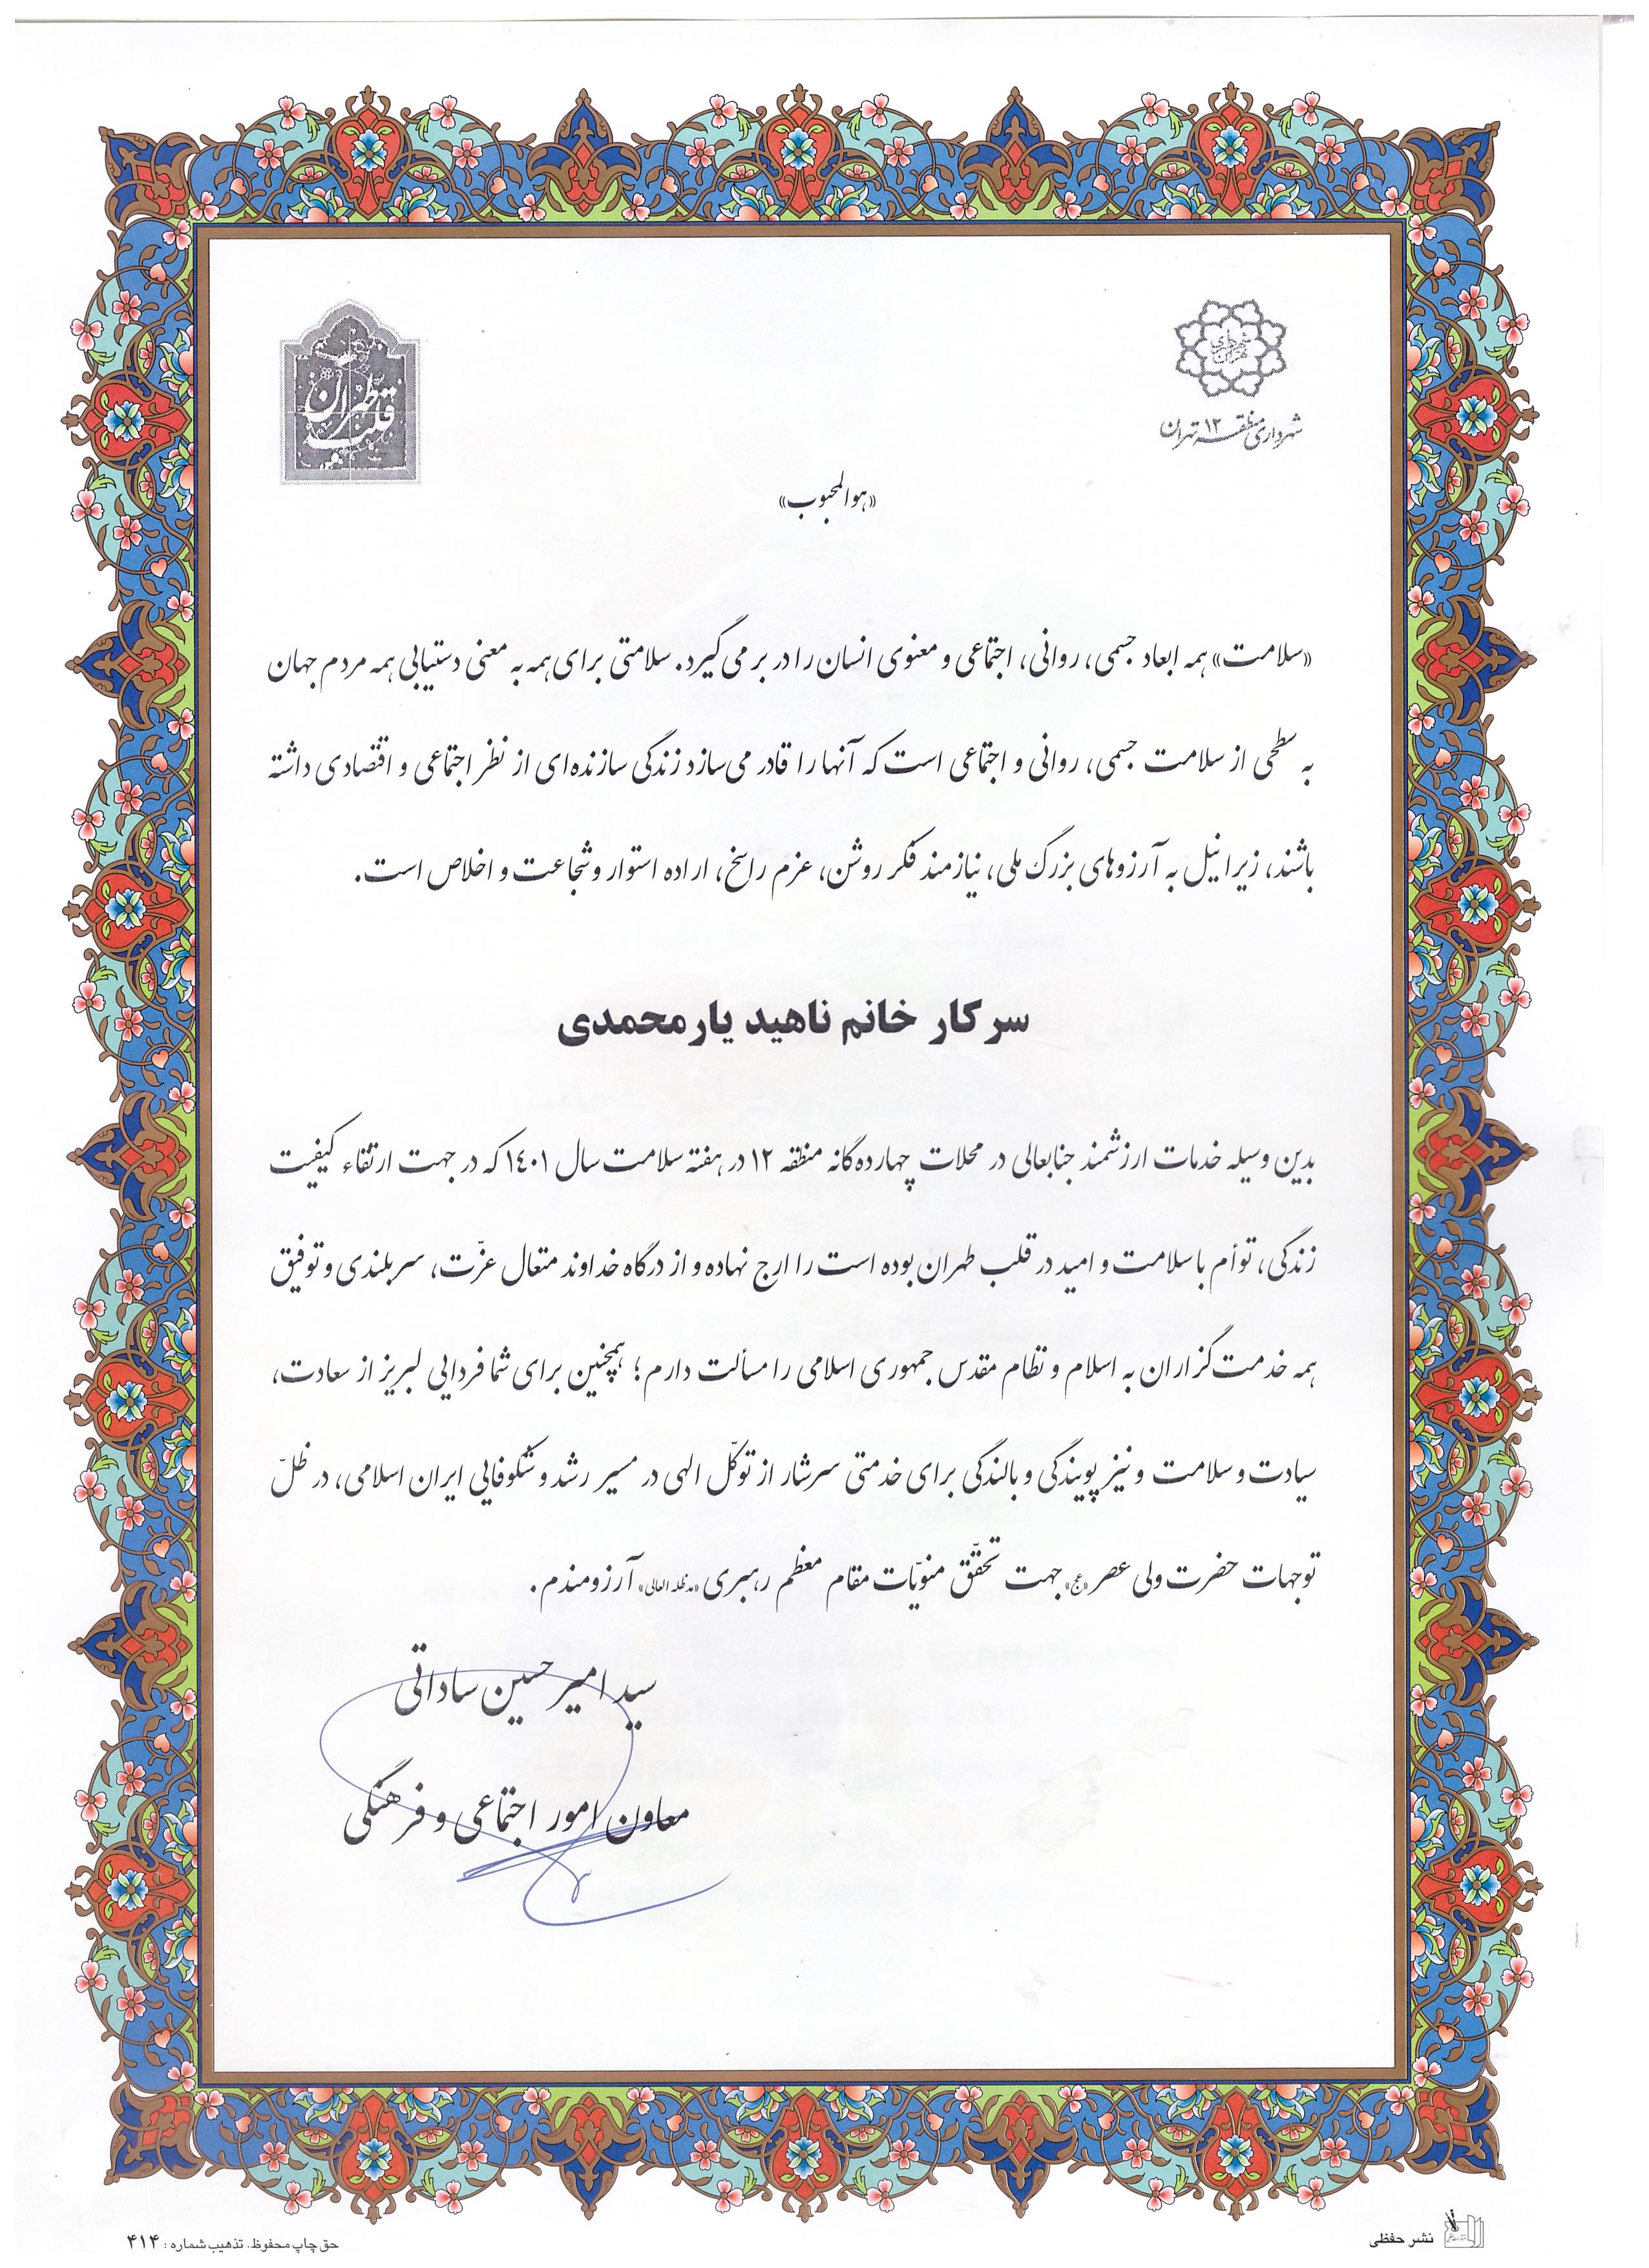 شهرداری تهران
شهرداری منطقه ۱۲ تهران
قلب طهران
«هو المحبوب»
«سلامت» همه ابعاد جسمی، روانی، اجتماعی و معنوی انسان را در بر می گیرد. سلامتی برای همه به معنی دستیابی همه مردم جهان
به سطحی از سلامت جسمی، روانی و اجتماعی است که آنها را قادر می‌سازد زندگی سازنده‌ای از نظر اجتماعی و اقتصادی داشته
باشند، زیرا نیل به آرزوهای بزرگ ملی، نیازمند فکر روشن، عزم راسخ، اراده استوار و شجاعت و اخلاص است.
سرکار خانم ناهید یارمحمدی
بدین وسیله خدمات ارزشمند جنابعالی در محلات چهارده‌گانه منطقه ۱۲ در هفته سلامت سال ۱۴۰۱ که در جهت ارتقاء کیفیت
زندگی، توأم با سلامت و امید در قلب طهران بوده است را ارج نهاده و از درگاه خداوند متعال عزّت، سربلندی و توفیق
همه خدمت‌گزاران به اسلام و نظام مقدس جمهوری اسلامی را مسألت دارم؛ همچنین برای شما فردایی لبریز از سعادت،
سیادت و سلامت و نیز پویندگی و بالندگی برای خدمتی سرشار از توکّل الهی در مسیر رشد و شکوفایی ایران اسلامی، در ظلّ
توجهات حضرت ولی عصر «عج» جهت تحقّق منویّات مقام معظم رهبری «مدظله العالی» آرزومندم.
سید امیرحسین ساداتی
معاون امور اجتماعی و فرهنگی
نشر حفظی
حق چاپ محفوظ. تذهیب شماره : ۴۱۴